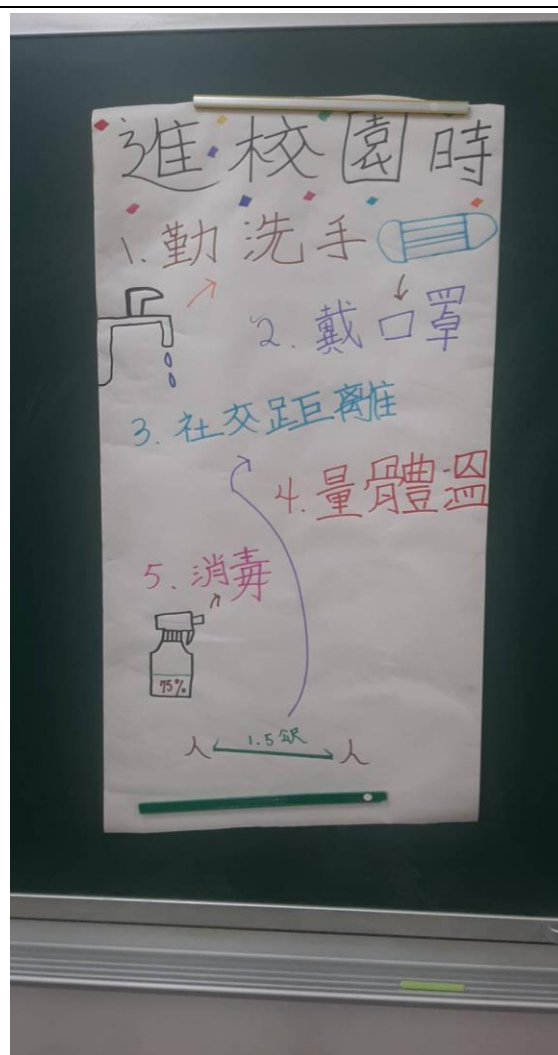 進校園時
1. 勤洗手
2. 戴口罩
3. 社交距離
4. 量體溫
5. 消毒
75%
人 1.5公尺 人